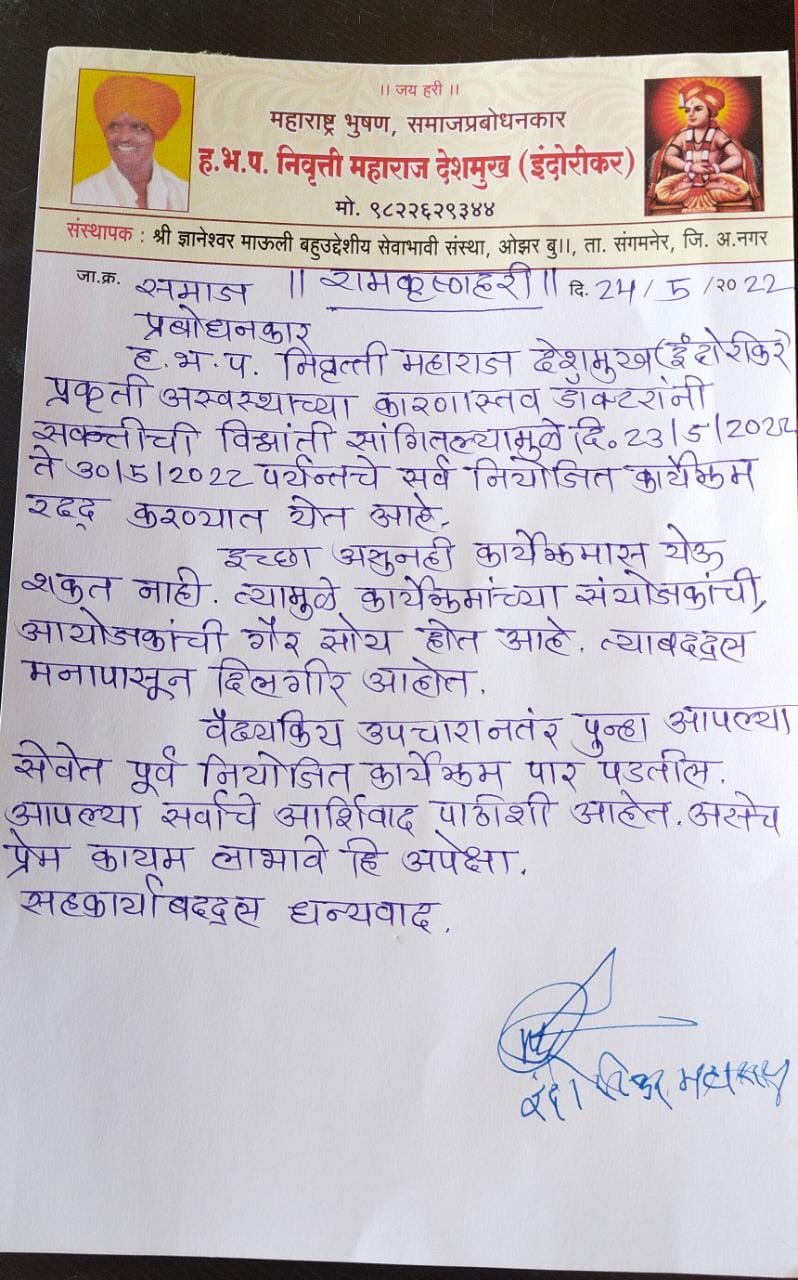 ।। जय हरी ।।
महाराष्ट्र भुषण, समाजप्रबोधनकार
ह.भ.प. निवृत्ती महाराज देशमुख (इंदोरीकर)
मो. ९८२२६२९३४४
संस्थापक : श्री ज्ञानेश्वर माऊली बहुउद्देशीय सेवाभावी संस्था, ओझर बु।।, ता. संगमनेर, जि. अ.नगर
जा.क्र. समाज ॥ रामकृष्णहरी ॥ दि. 24/5/२०22
प्रबोधनकार
ह.भ.प. निवृत्ती महाराज देशमुख (इंदोरीकर)
प्रकृती अस्वस्थाच्या कारणास्तव डॉक्टरांनी
सक्तीची विश्रांती सांगितल्यामुळे दि. 23/5/2022
ते 30/5/2022 पर्यन्तचे सर्व नियोजित कार्यक्रम
रद्द करण्यात येत आहे.
इच्छा असुनही कार्यक्रमास येऊ
शकत नाही. त्यामुळे कार्यक्रमांच्या संयोजकांची,
आयोजकांची गैर सोय होत आहे. त्याबद्दल
मनापासून दिलगीर आहोत.
वैद्यकिय उपचारानतंर पुन्हा आपल्या
सेवेत पूर्व नियोजित कार्यक्रम पार पडतील.
आपल्या सर्वांचे आर्शिवाद पाठीशी आहेत. असेच
प्रेम कायम लाभावे हि अपेक्षा.
सहकार्याबद्दल धन्यवाद.
इंदोरीकर महाराज